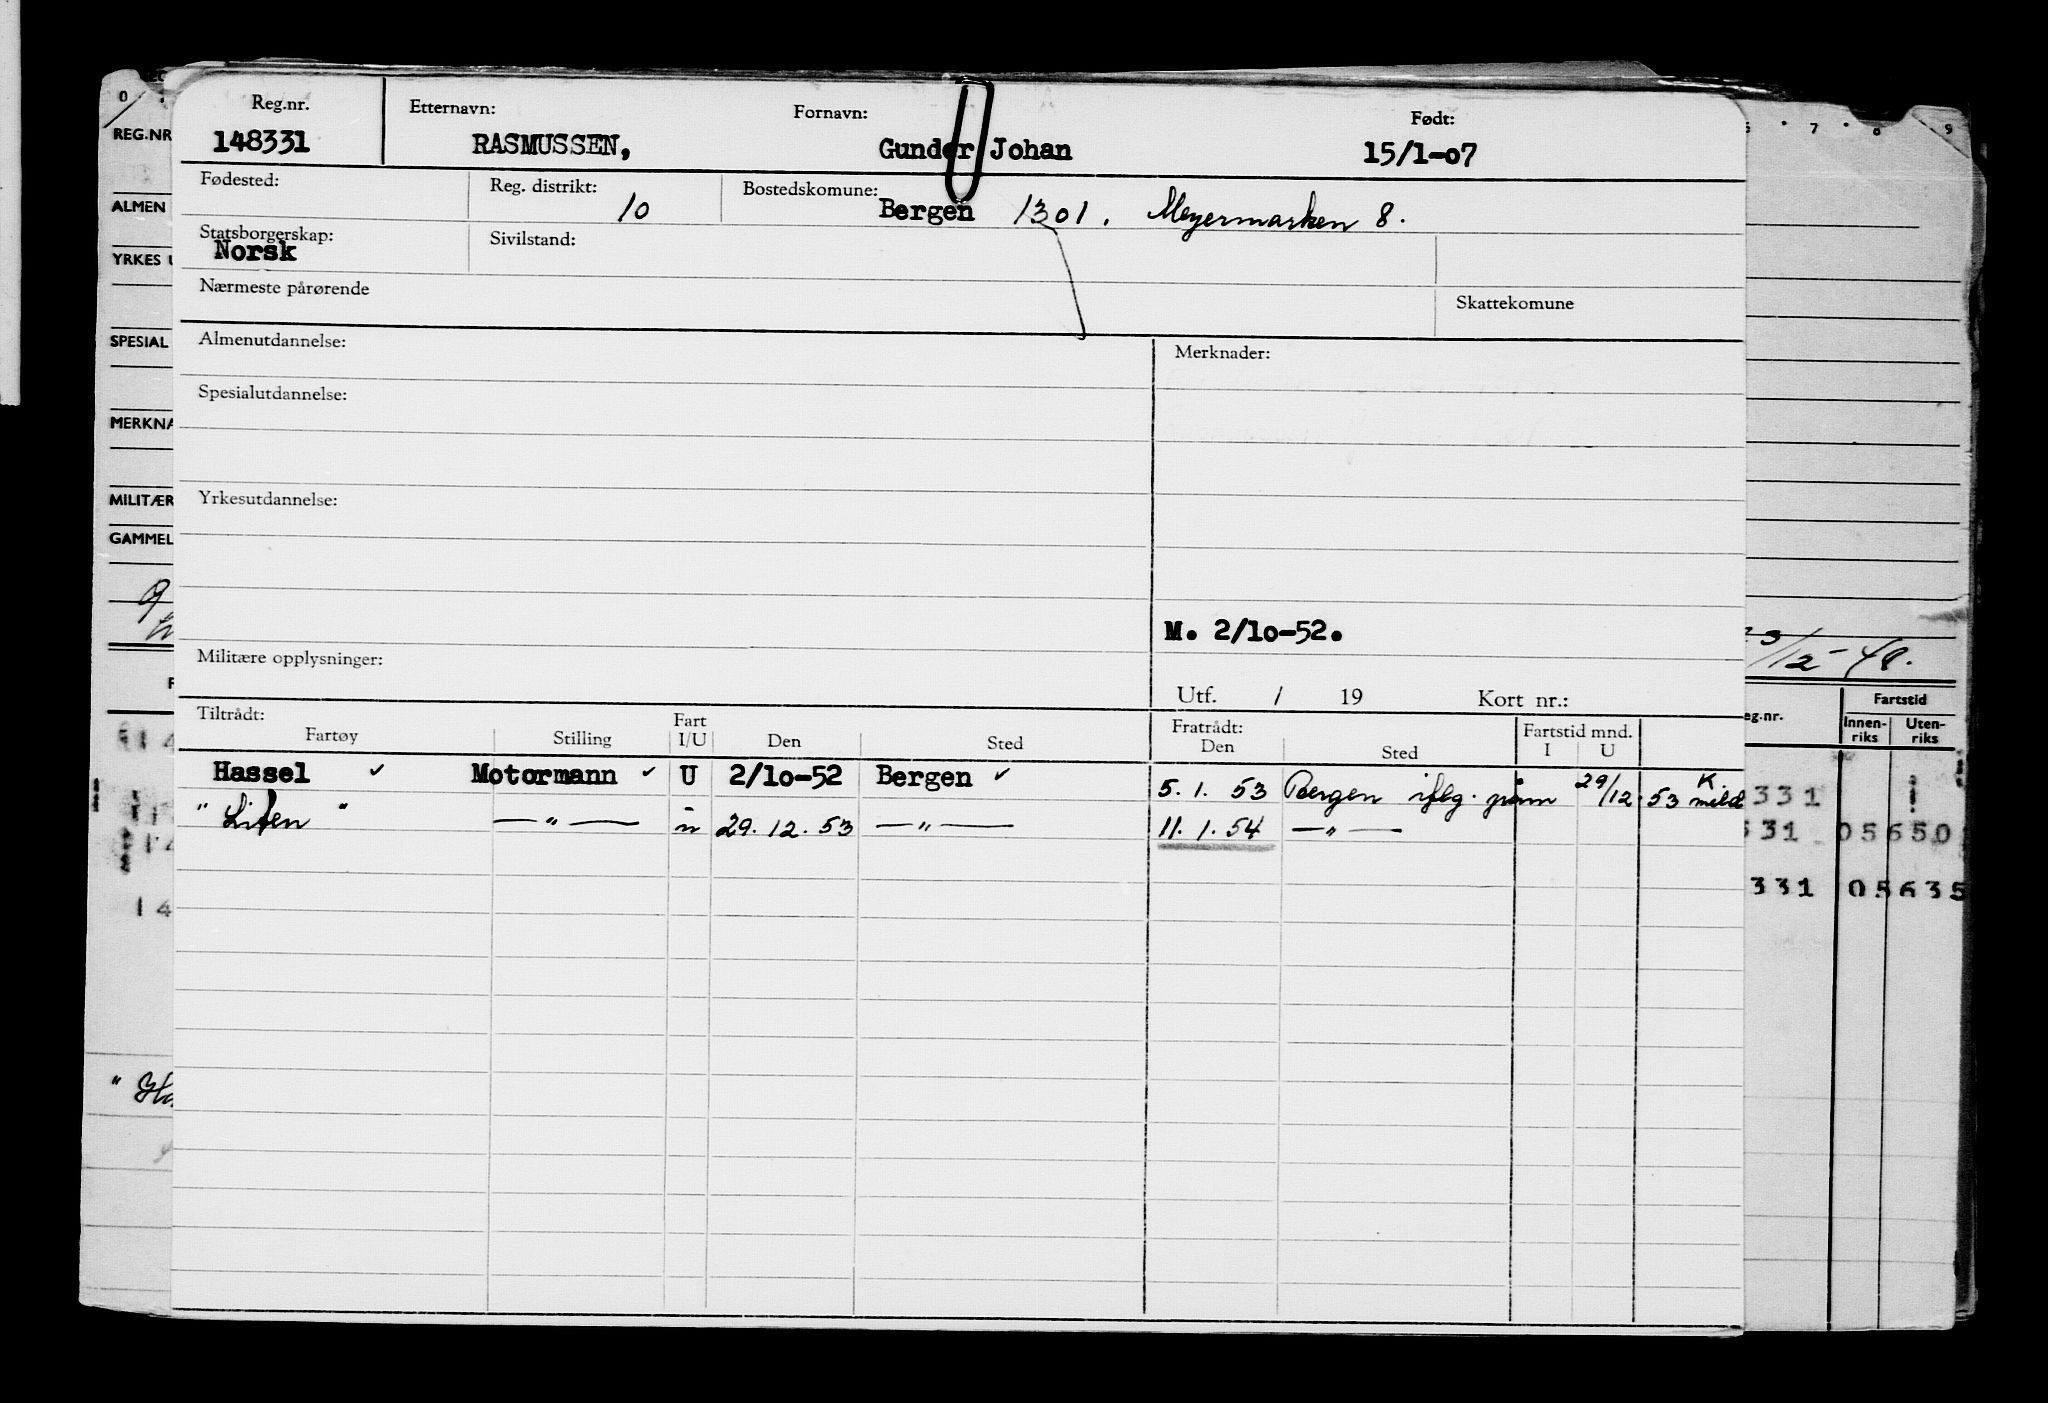 0
REG.NR
ALMEN
YRKES U
SPESIAL
MERKNA
MILITÆR
GAMMEL
Reg.nr. Etternavn: Fornavn: Født:
148331 RASMUSSEN, Gunder Johan 15/1-07
Fødested: Reg. distrikt: 10 Bostedskomune: Bergen 1301. Meyermarken 8.
Statsborgerskap: Norsk Sivilstand:
Nærmeste pårørende Skattekomune
Almenutdannelse: Merknader:
Spesialutdannelse:
Yrkesutdannelse:
M. 2/10-52.
Militære opplysninger:
Utf. / 19 Kort nr.:
Tiltrådt: Fratrådt:
Fartøy Stilling Fart I/U Den Sted Den Sted Fartstid mnd. I U
Hassel ✓ Motormann ✓ U 2/10-52 Bergen ✓ 5.1.53 Bergen iflg. 29/12.53 K. meld
" " — " — 29.12.53 — " — 11.1.54 — " —
7 8 9
/12-48.
eg.nr. Fartstid
Innen-riks Uten-riks
331
331 05650
331 05635
14
14